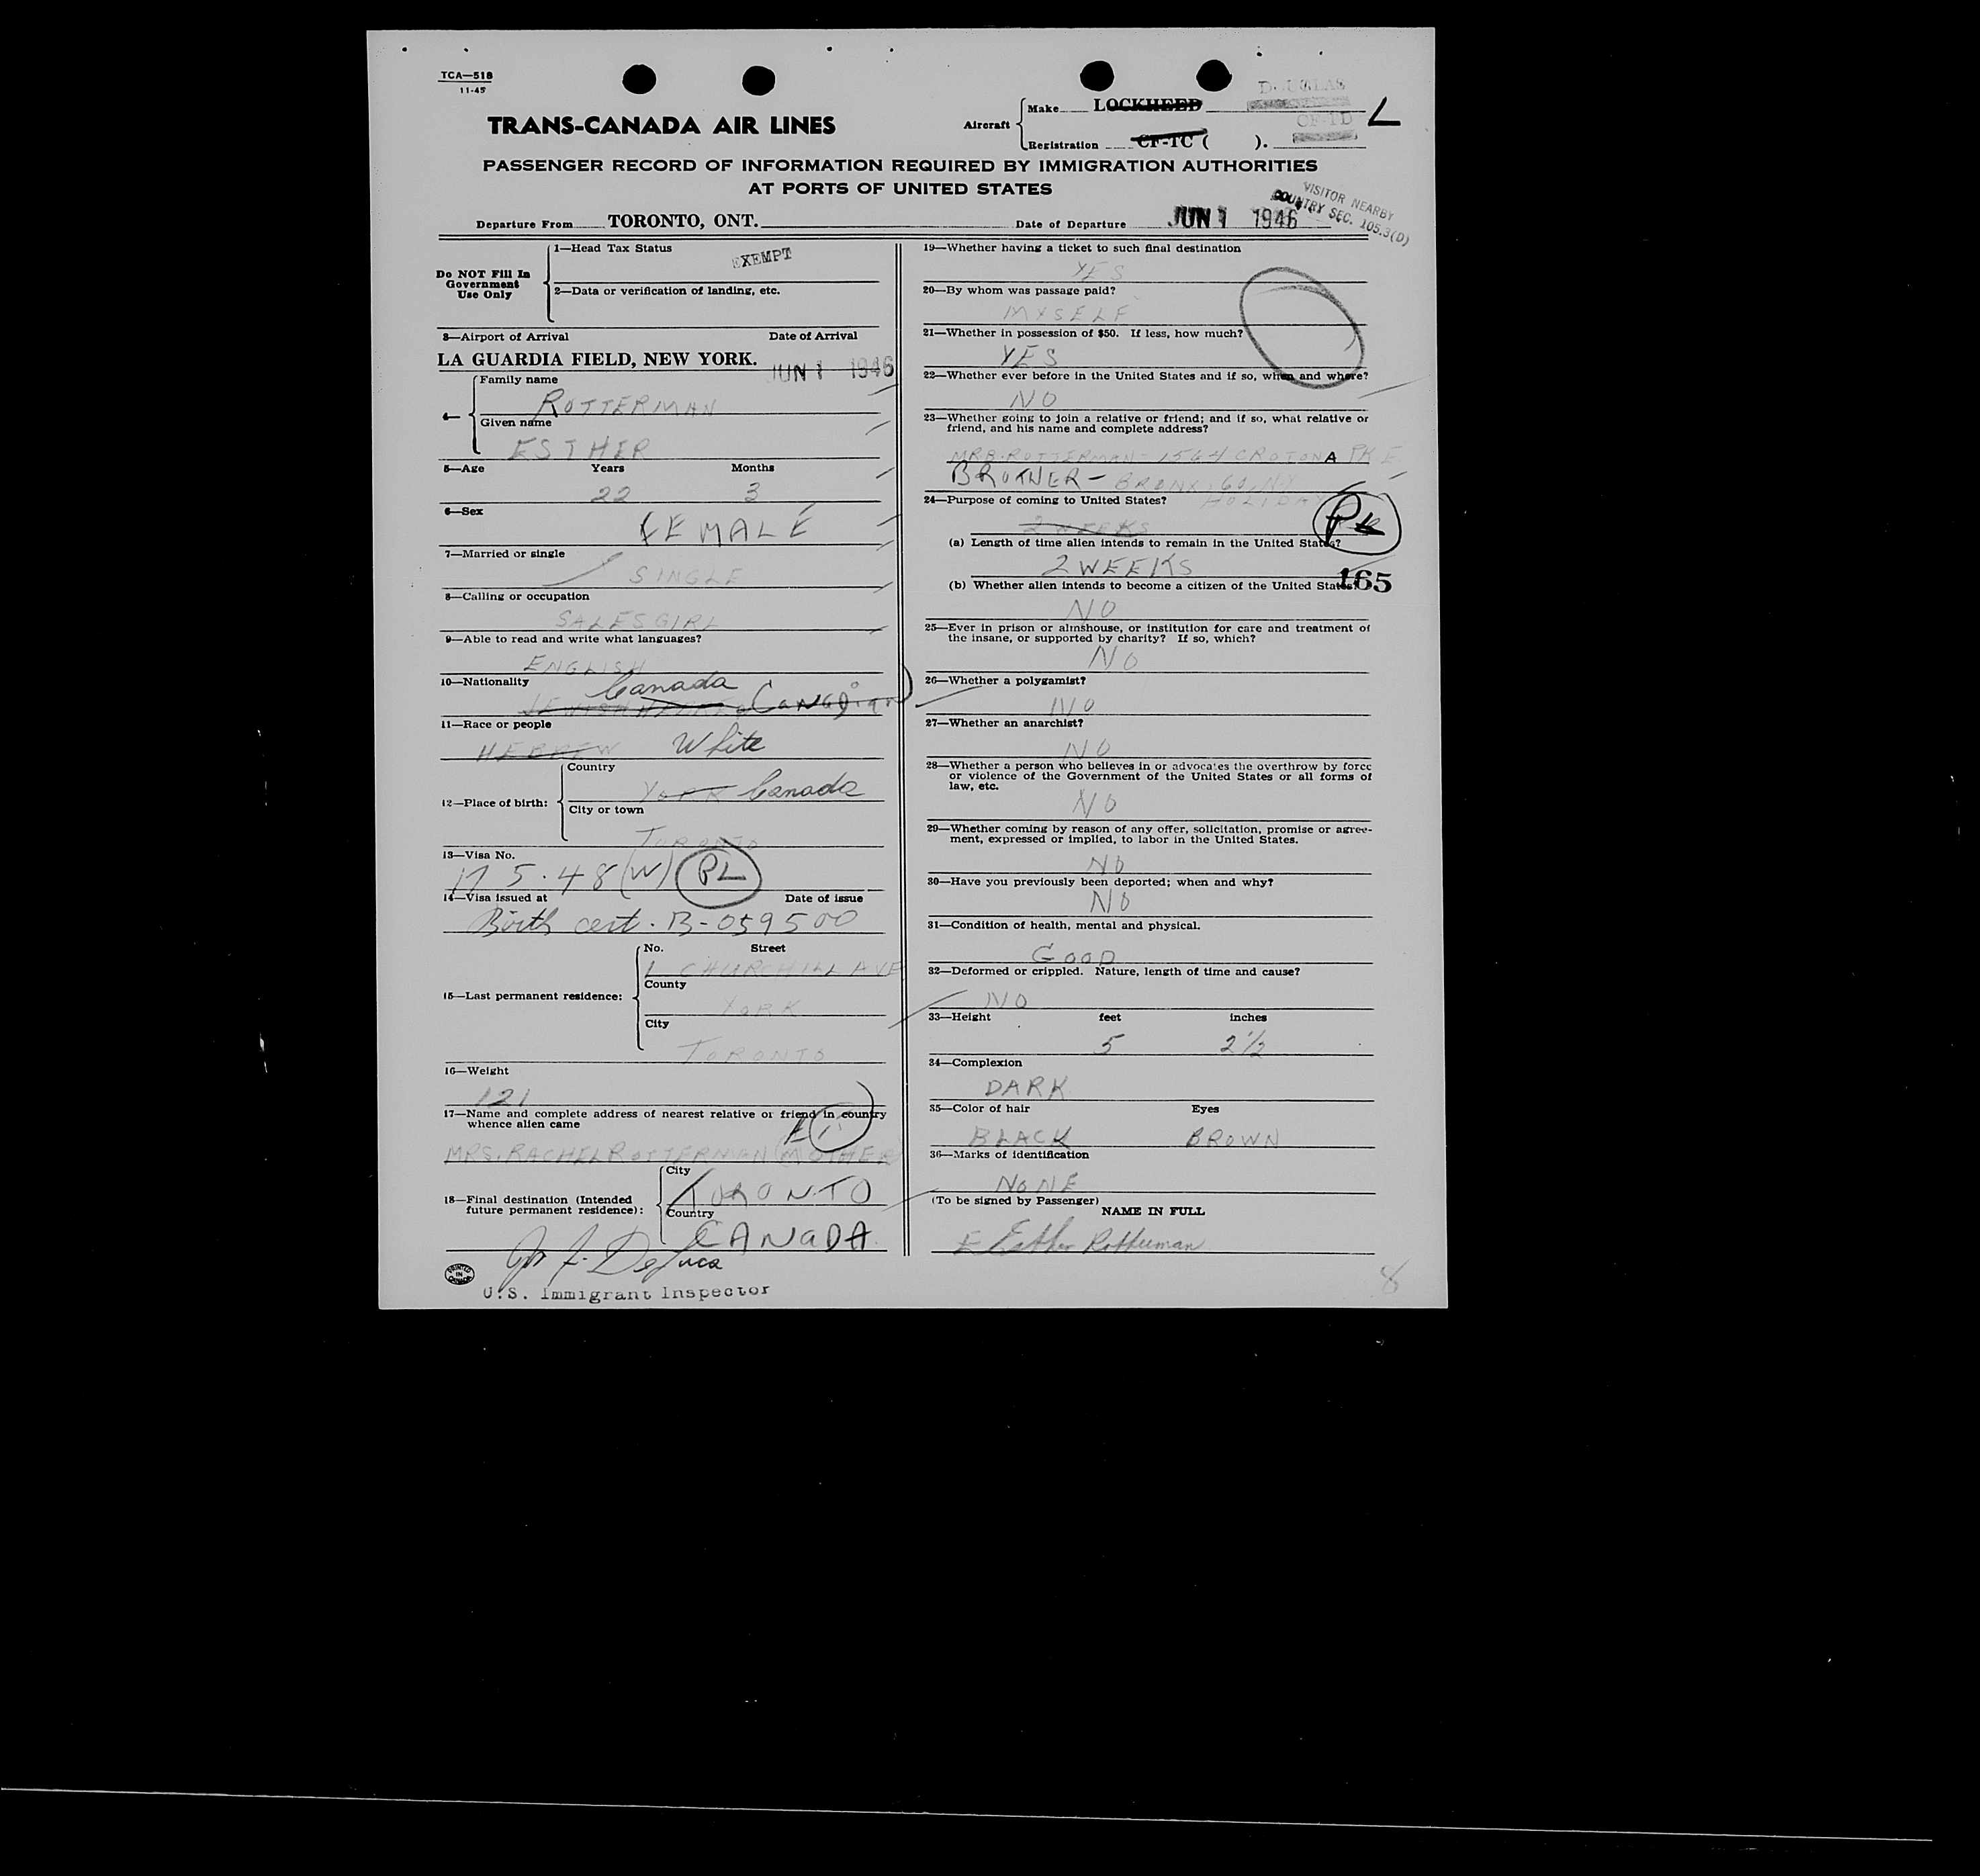 TCA—518
11-45
TRANS-CANADA AIR LINES
Aircraft
Make LOCKHEED DOUGLAS
Registration CF-TC ( ). CF-TD
PASSENGER RECORD OF INFORMATION REQUIRED BY IMMIGRATION AUTHORITIES
AT PORTS OF UNITED STATES
VISITOR NEARBY
COUNTRY SEC. 105.3(D)
Departure From TORONTO, ONT. Date of Departure JUN 1 1946
Do NOT Fill In
Government
Use Only
1—Head Tax Status
EXEMPT
2—Data or verification of landing, etc.
3—Airport of Arrival Date of Arrival
LA GUARDIA FIELD, NEW YORK. JUN 1 1946
4—
Family name
ROTTERMAN
Given name
ESTHER
5—Age Years Months
22 3
6—Sex
FEMALE
7—Married or single
SINGLE
8—Calling or occupation
SALESGIRL
9—Able to read and write what languages?
ENGLISH
10—Nationality
Canada
JEWISH HEBREW Canadian
11—Race or people
HEBREW White
12—Place of birth:
Country
YORK Canada
City or town
TORONTO
13—Visa No.
17 5.48 (W) PL
14—Visa issued at Date of issue
Birth cert. B-059500
15—Last permanent residence:
No. Street
1 CHURCHILL AVE
County
YORK
City
TORONTO
16—Weight
121
17—Name and complete address of nearest relative or friend in country
whence alien came
MRS. RACHEL ROTTERMAN (MOTHER
18—Final destination (Intended
future permanent residence):
City
TORONTO
Country
CANADA
U.S. Immigrant Inspector
PRINTED IN CANADA
19—Whether having a ticket to such final destination
YES
20—By whom was passage paid?
MYSELF
21—Whether in possession of $50. If less, how much?
YES
22—Whether ever before in the United States and if so, when and where?
NO
23—Whether going to join a relative or friend; and if so, what relative or
friend, and his name and complete address?
MR B. ROTTERMAN - 1564 CROTONA PK E
BROTHER - BRONX, 60, N.Y.
24—Purpose of coming to United States? HOLIDAY
2 WEEKS
PL
(a) Length of time alien intends to remain in the United States?
2 WEEKS
(b) Whether alien intends to become a citizen of the United States?
165
NO
25—Ever in prison or almshouse, or institution for care and treatment of
the insane, or supported by charity? If so, which?
NO
26—Whether a polygamist?
NO
27—Whether an anarchist?
NO
28—Whether a person who believes in or advocates the overthrow by force
or violence of the Government of the United States or all forms of
law, etc.
NO
29—Whether coming by reason of any offer, solicitation, promise or agree-
ment, expressed or implied, to labor in the United States.
NO
30—Have you previously been deported; when and why?
NO
31—Condition of health, mental and physical.
GOOD
32—Deformed or crippled. Nature, length of time and cause?
NO
33—Height feet inches
5 2 1/2
34—Complexion
DARK
35—Color of hair Eyes
BLACK BROWN
36—Marks of identification
NONE
(To be signed by Passenger)
NAME IN FULL
E Esther Rotterman
8